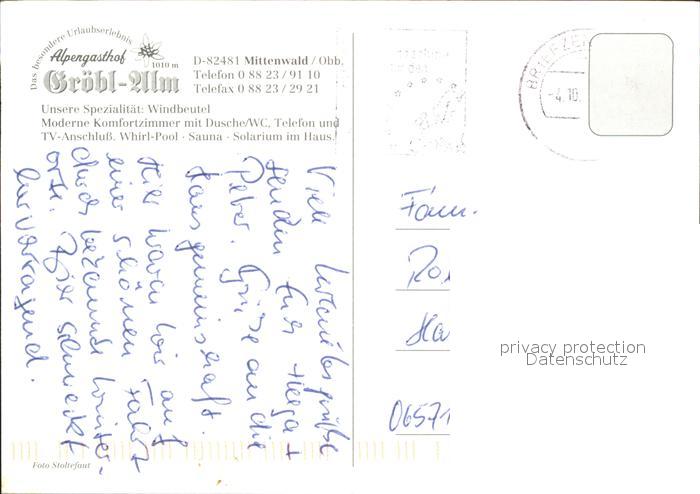 Das besondere Urlaubserlebnis
Alpengasthof
1010 m
Gröbl-Alm
D-82481 Mittenwald / Obb.
Telefon 0 88 23 / 91 10
Telefax 0 88 23 / 29 21
Unsere Spezialität: Windbeutel
Moderne Komfortzimmer mit Dusche/WC, Telefon und
TV-Anschluß. Whirl-Pool · Sauna · Solarium im Haus.
Viele Urlaubsgrüße
senden Euch Helga +
Peter. Grüße an die
Hausgemeinschaft.
Hier waren wir auf
einer schönen Fahrt
durch bekannte Winter-
orte. Hier schmeckt
hervorragend.
Foto Stoltefaut
BRIEFZE
-4.10.
Fam.
Ro
Ha
06571
privacy protection
Datenschutz